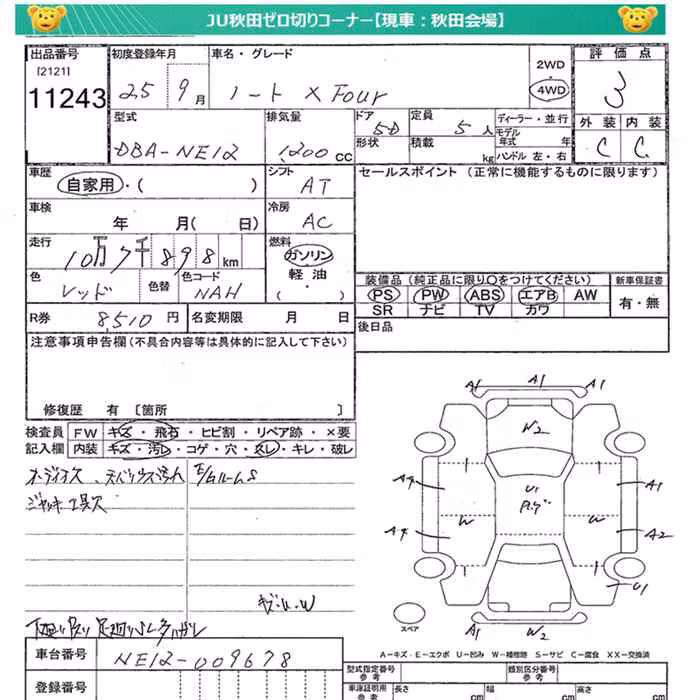 JU秋田ゼロ切りコーナー【現車：秋田会場】
出品番号 初度登録年月 車名・グレード 2WD・4WD 評価点
[2121]
11243 25 9月 ノート X Four 3
型式 排気量 ドア 定員 ディーラー・並行 外装 内装
DBA-NE12 1,200cc 5D 5人 モデル年式 年 C C
形状 積載 kg ハンドル 左・右
車歴 シフト セールスポイント (正常に機能するものに限ります)
自家用・( ) AT
車検 冷房
年 月( 日) AC
走行 燃料
10万7千898km ガソリン・軽油・( )
色 色替 色コード 装備品 (純正品に限り〇をつけてください) 新車保証書
レッド NAH PS PW ABS エアB AW 有・無
SR ナビ TV カワ
R券 8,510円 名変期限 月 日 後日品
注意事項申告欄(不具合内容等は具体的に記入して下さい)
修復歴 有 [箇所 ]
検査員 FW キズ・飛石・ヒビ割・リペア跡・×要
記入欄 内装 キズ・汚レ・コゲ・穴・スレ・キレ・破レ
ジャッキ工具欠
A1 A1 A1
W2
A4 U1 A1
A4 W W A2
U1
A1 W2
スペア
A-キズ・E-エクボ U-凹み W-補修跡 S-サビ C-腐食 XX-交換済
車台番号 NE12-009678
登録番号
型式指定番号 参考 類別区分番号 参考
車庫証明用 参考 長さ cm 幅 cm 高さ cm